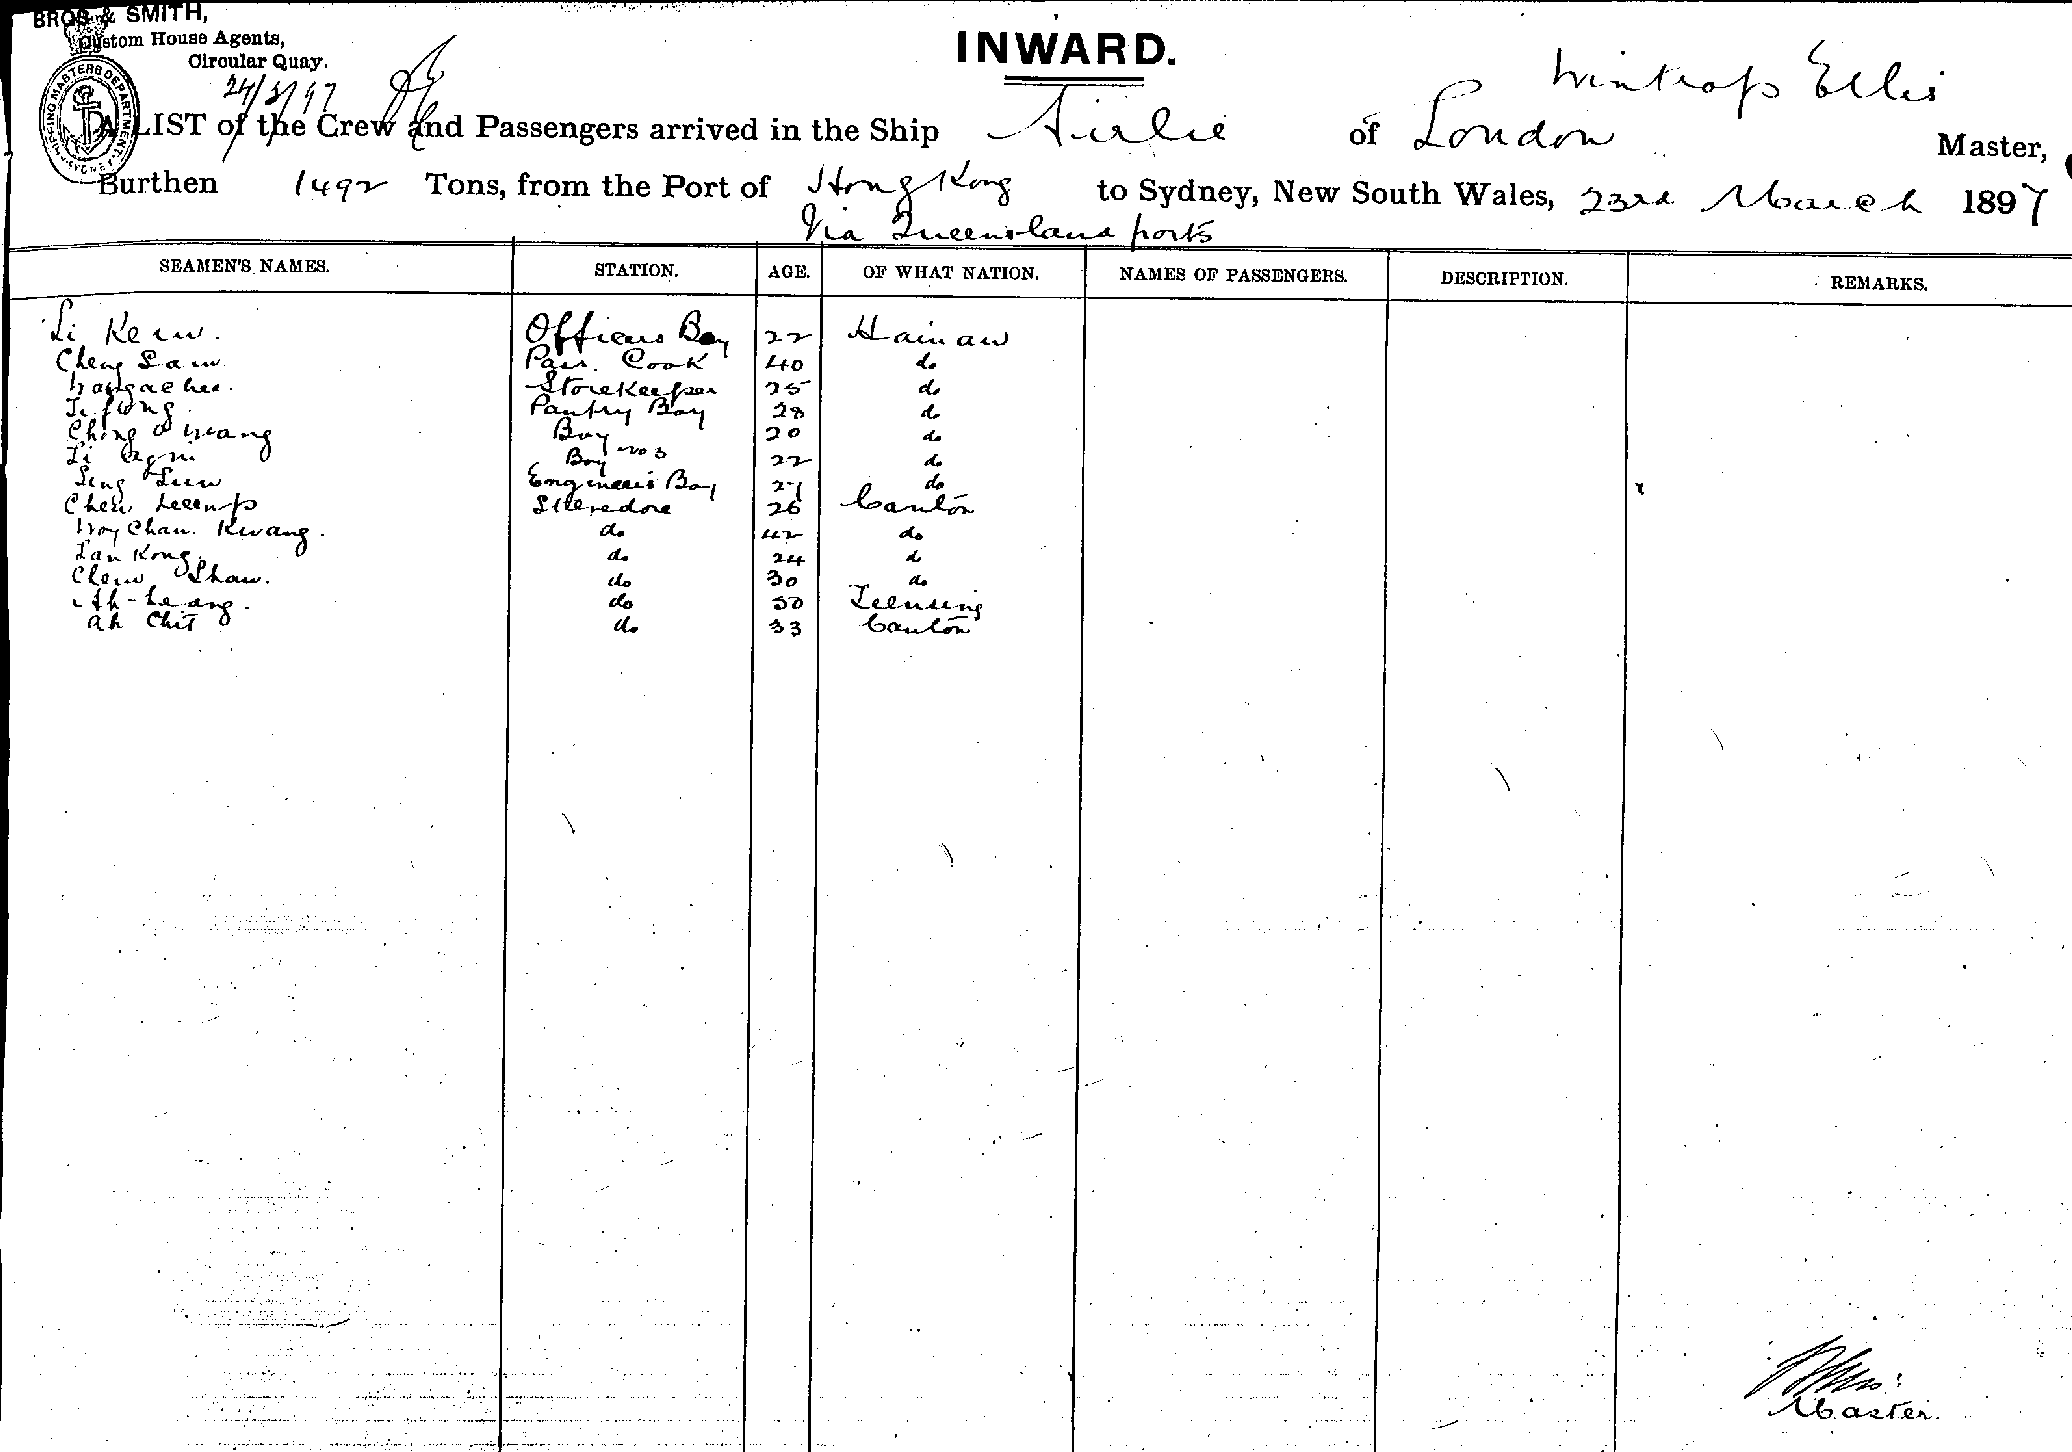 BROS & SMITH,
Custom House Agents,
Circular Quay.
24/3/97
INWARD.
Wintrop Ellis
A LIST of the Crew and Passengers arrived in the Ship Airlie of London Master,
Burthen 1492 Tons, from the Port of Hong Kong to Sydney, New South Wales, 23rd March 1897
Via Queensland ports
SEAMEN'S NAMES. STATION. AGE. OF WHAT NATION. NAMES OF PASSENGERS. DESCRIPTION. REMARKS.
Li Kew. Officers Boy 22 Hainan
Cheng Sam Pass. Cook 40 do
Storekeeper 25 do
Pantry Boy 28 do
Ching Boy 20 do
Li Boy No 3 22 do
Sing Engineers Boy 27 do
Chew Stevedore 26 Canton
Chan Kwang. do 42 do
Lan Kong. do 24 do
Chew Shaw. do 30 do
Ah-Leang. do 50
Ah Chit do 33 Canton
Master.